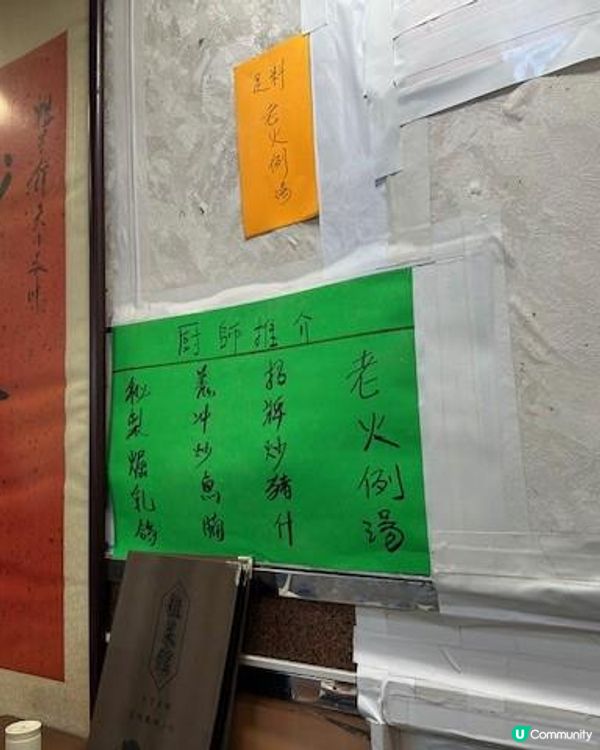 足料
老火例湯
厨師推介
老火例湯
招牌炒豬什
羗冲炒魚腩
秘製焗乳鴿
粗菜館
U Community